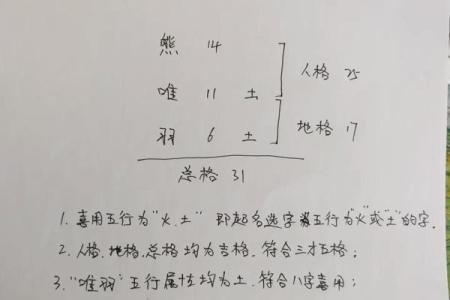 熊 14
人格 25
唯 11 土
地格 17
羽 6 土
总格 31
1. 喜用五行为"火、土" 即起名选字五行为"火"或"土"的字.
2. 人格、地格、总格均为吉格, 符合三才五格;
3. "唯羽"五行属性均为土, 符合八字喜用;